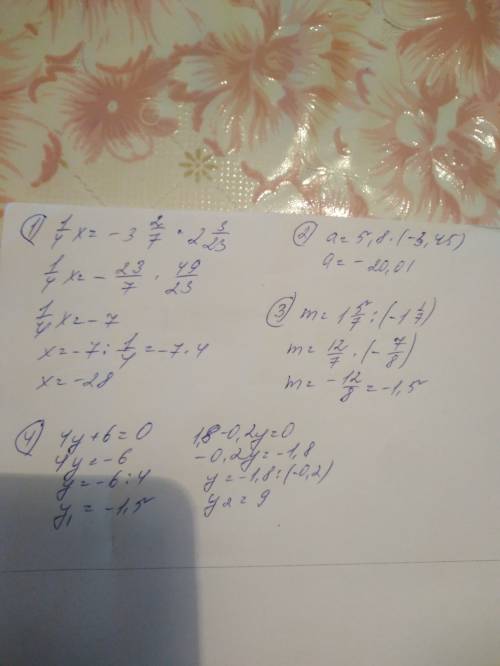 1) 1/4 x = -3 2/7 · 2 3/23
1/4 x = - 23/7 · 49/23
1/4 x = -7
x = -7 : 1/4 = -7 · 4
x = -28
2) a = 5,8 · (-3,45)
a = -20,01
3) m = 1 5/7 : (-1 1/7)
m = 12/7 · (- 7/8)
m = - 12/8 = -1,5
4) 4y + 6 = 0
4y = -6
y = -6 : 4
y₁ = -1,5
1,8 - 0,2y = 0
-0,2y = -1,8
y = -1,8 : (-0,2)
y₂ = 9